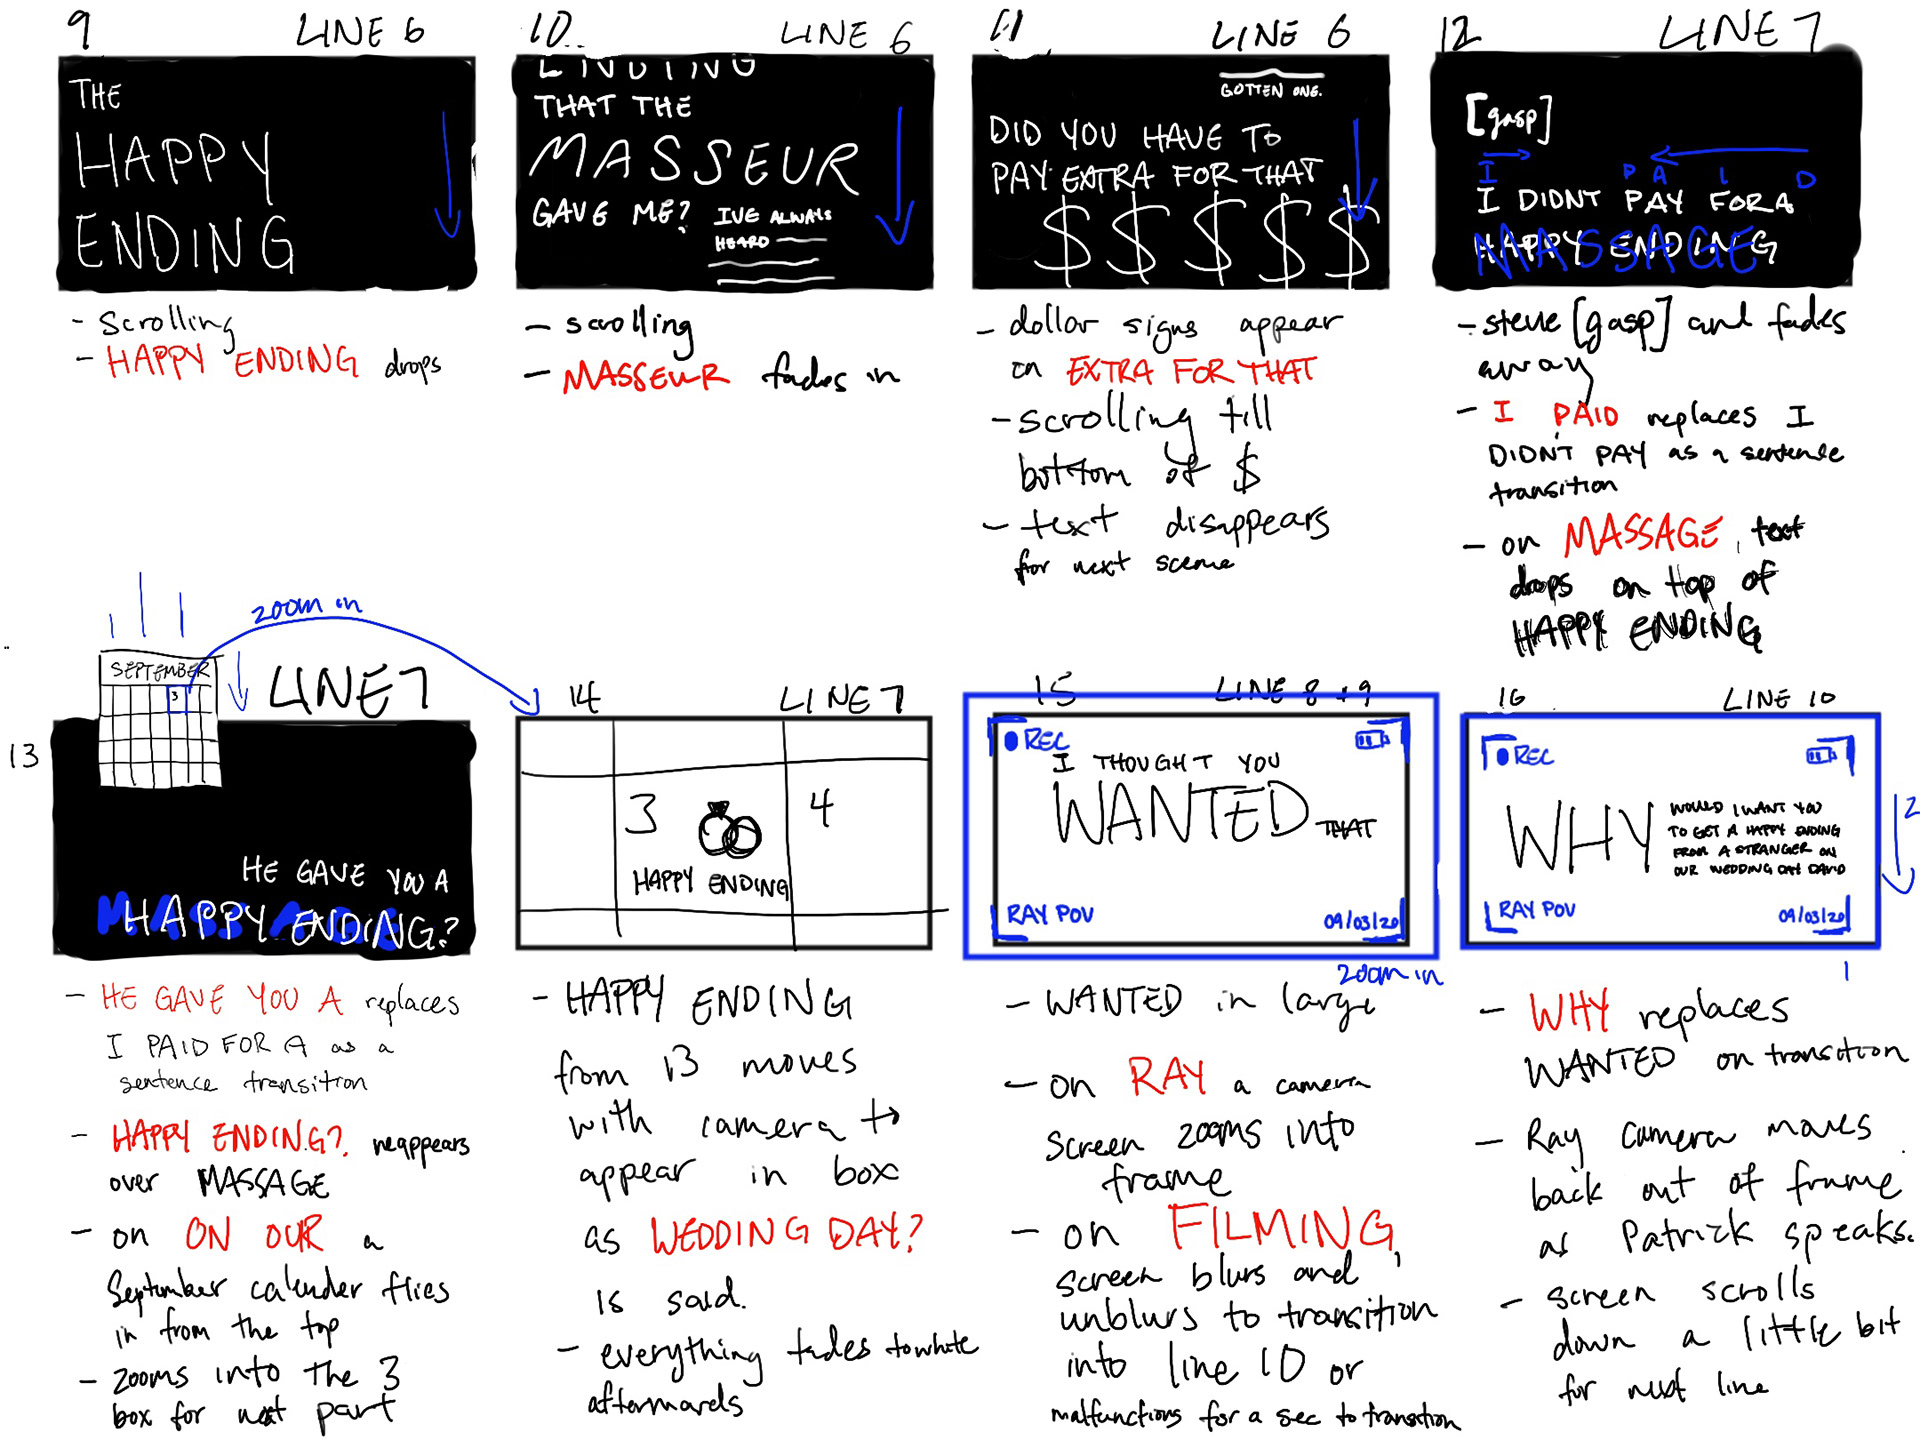 9 LINE 6
THE
HAPPY
ENDING
- scrolling
- HAPPY ENDING drops
10 LINE 6
ENDING
THAT THE
MASSEUR
GAVE ME? IVE ALWAYS
HEARD
- scrolling
- MASSEUR fades in
11 LINE 6
GOTTEN ONE.
DID YOU HAVE TO
PAY EXTRA FOR THAT
$ $ $ $ $
- dollar signs appear
on EXTRA FOR THAT
- scrolling till
bottom of $
- text disappears
for next scene
12 LINE 7
[gasp]
I P A I D
I DIDNT PAY FOR A
HAPPY ENDING
MASSAGE
- steve [gasp] and fades
away
- I PAID replaces I
DIDN'T PAY as a sentence
transition
- on MASSAGE, text
drops on top of
HAPPY ENDING
zoom in
13 LINE 7
SEPTEMBER
3
HE GAVE YOU A
MASSAGE
HAPPY ENDING?
- HE GAVE YOU A replaces
I PAID FOR A as a
sentence transition
- HAPPY ENDING? reappears
over MASSAGE
- on ON OUR a
September calender flies
in from the top
- zooms into the 3
box for next part
14 LINE 7
3 4
HAPPY ENDING
- HAPPY ENDING
from 13 moves
with camera to
appear in box
as WEDDING DAY?
is said.
- everything fades to white
afterwards
15 LINE 8 + 9
REC
I THOUGHT YOU
WANTED THAT
RAY POV 09/03/20
zoom in
- WANTED in large
- on RAY a camera
screen zooms into
frame
- on FILMING,
screen blurs and
unblurs to transition
into line 10 or
malfunctions for a sec to transition
16 LINE 10
REC
WHY
WOULD I WANT YOU
TO GET A HAPPY ENDING
FROM A STRANGER ON
OUR WEDDING DAY DAVID
RAY POV 09/03/20
2
1
- WHY replaces
WANTED on transition
- Ray camera moves
back out of frame
as Patrick speaks.
- screen scrolls
down a little bit
for next line